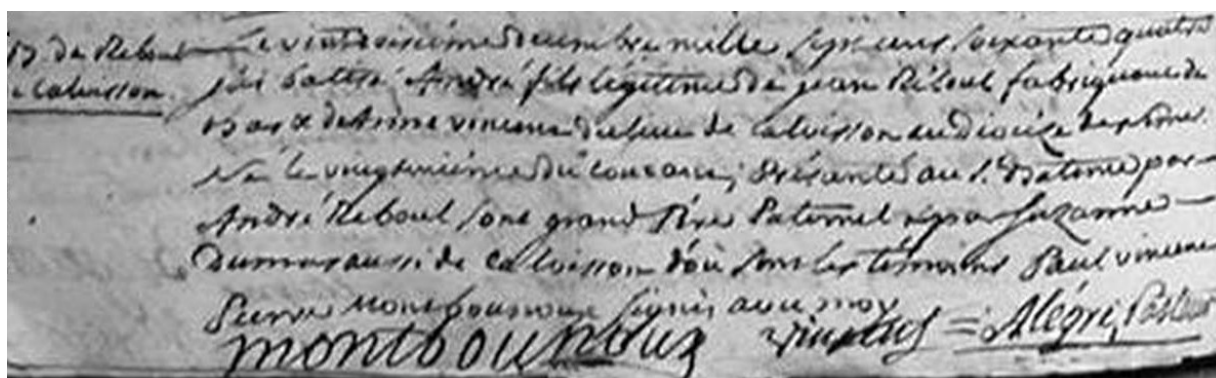 B. de Reboul
Calvisson.
Le vint troisième decembre mille sept cens soixante quatre
j'ai battisé André fils légitime de jean Réboul fabriqueur de
bas & de Anne vincens du lieu de Calvisson au diocèze de nîmes.
Né le vingt unième du courant; Présanté au S. Batême par
André Reboul son grand Père Paternel & par Suzanne
Dumas aussi de Calvisson d'où sont les témoins Paul vincens
Pierre Montbounoux signés avec moy
montbounoux vincens = Alégre, Pasteur